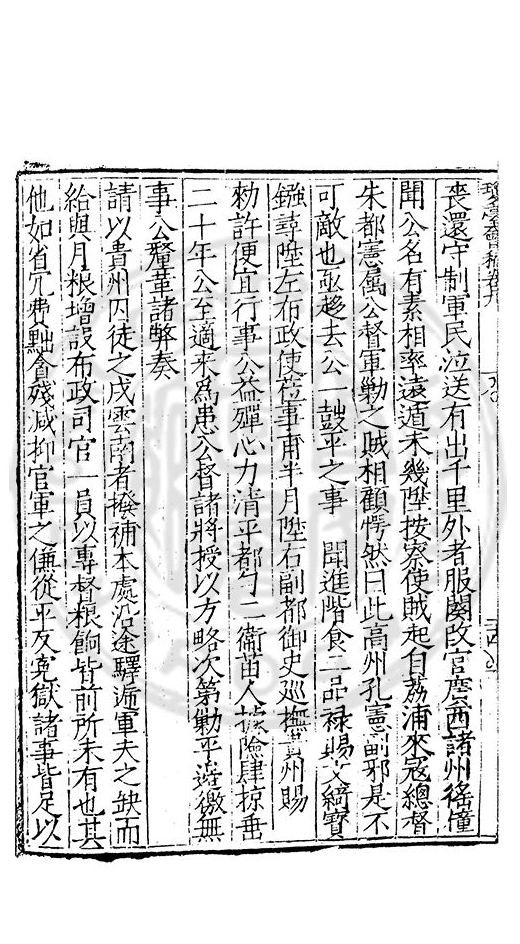 瓊臺類稿卷
喪還守制軍民泣送有出千里外者服闋改官廣西諸州徭獞
聞公名有素相率遠遁未幾陞按察使賊起自荔浦來寇總督
朱都憲屬公督軍勦之賊相顧愕然曰此高州孔憲副邪是不
可敵也亟趨去公一鼓平之事 聞進階食二品祿賜文綺寶
鏹尋陞左布政使蒞事甫半月陞右副都御史巡撫貴州賜
勑許便宜行事公益殫心力清平都勻二衛苗人據險肆掠垂
二十年公至適來為患公督諸將授以方略次第勦平邊徼無
事公釐革諸弊奏
請以貴州囚徒之戍雲南者撥補本處沿途驛遞軍夫之缺而
給與月糧增設布政司官一員以專督糧餉皆前所未有也其
他如省冗費黜貪殘減抑官軍之傔從平反冤獄諸事皆足以